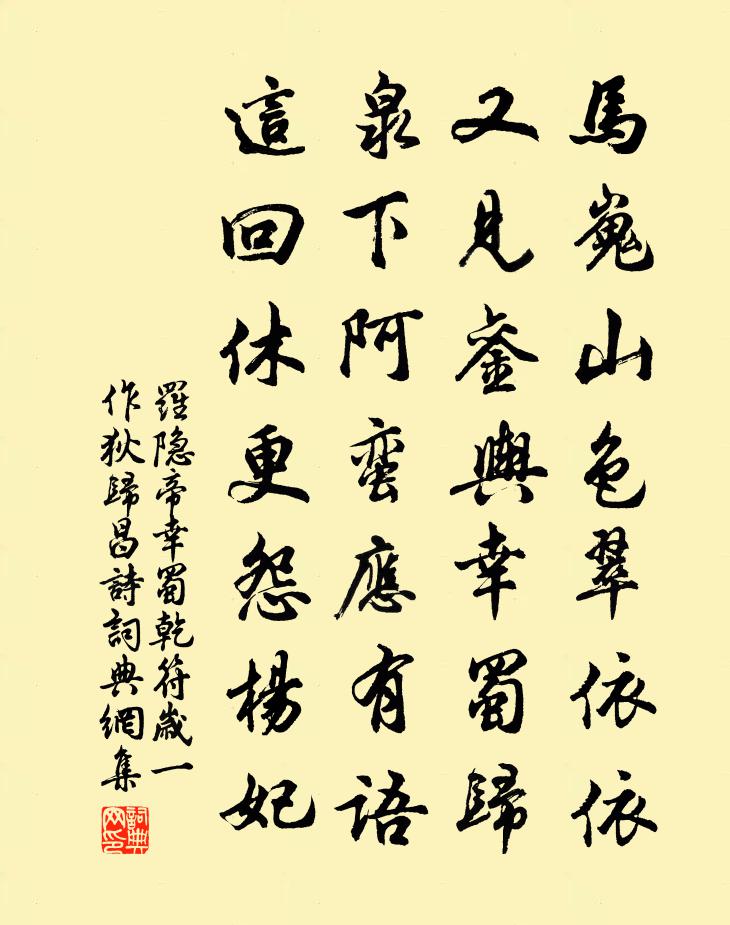 馬嵬山色翠依依
又見鑾輿幸蜀歸
泉下阿蠻應有語
這回休更怨楊妃
羅隐帝幸蜀乾符歲一
作狄歸昌詩詞典網集
詞典網印